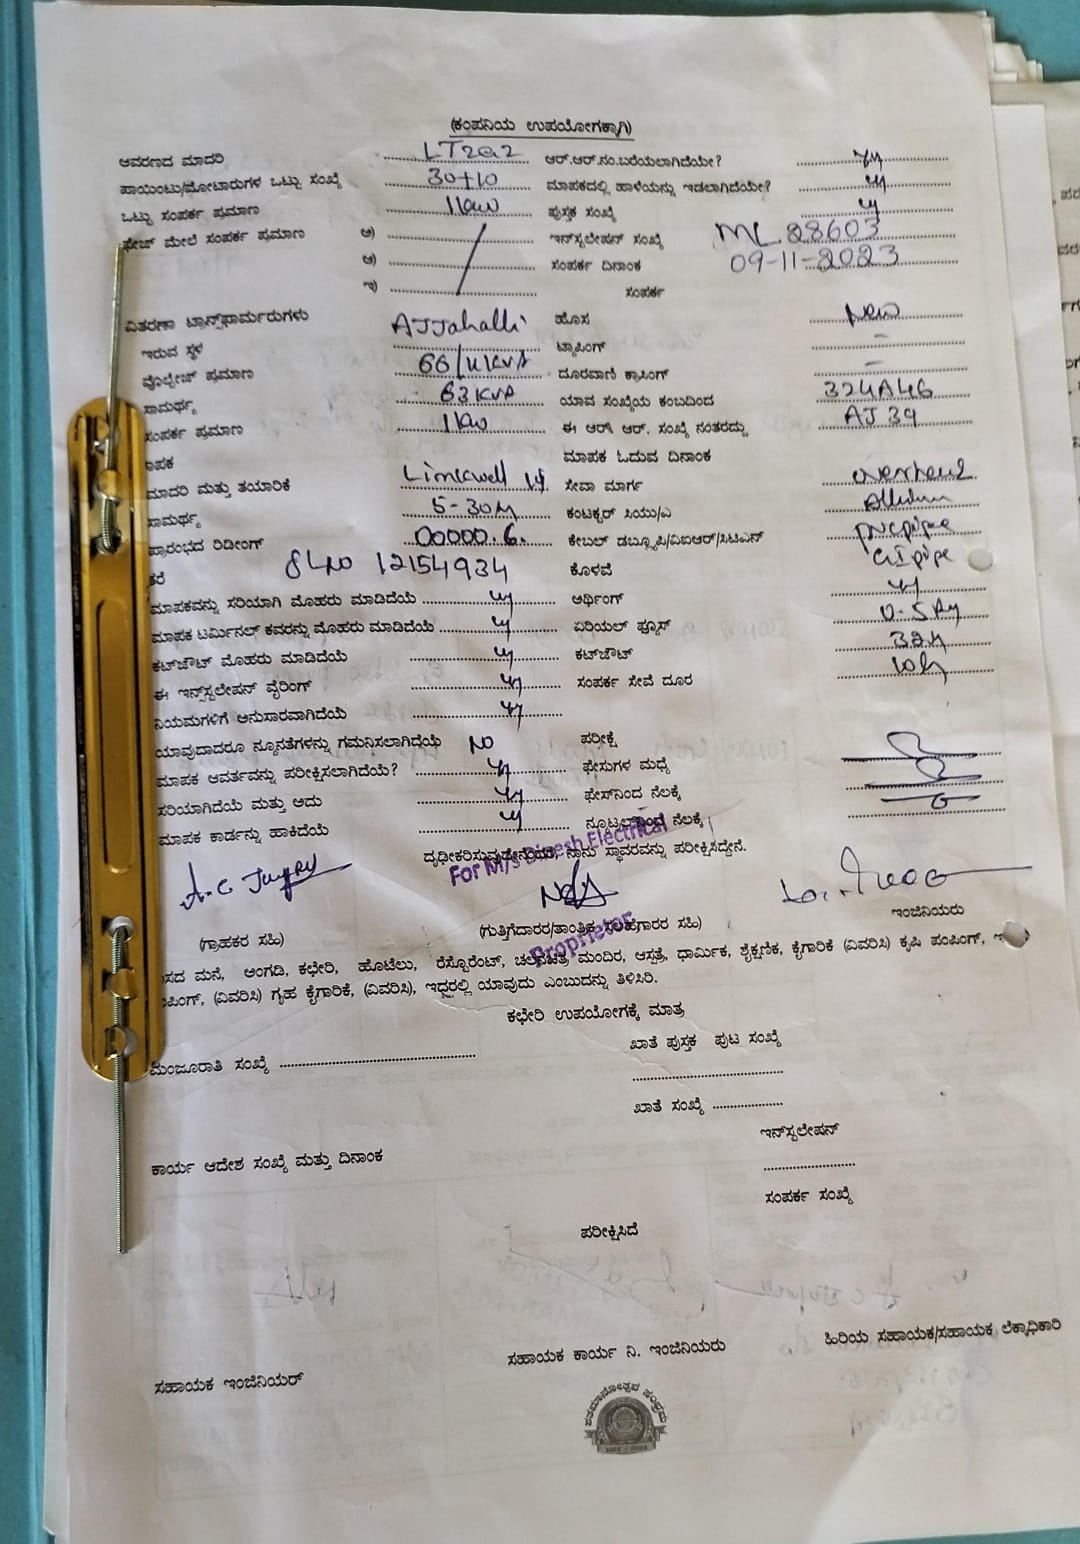 (ಕಂಪನಿಯ ಉಪಯೋಗಕ್ಕಾಗಿ)
ಆವರಣದ ಮಾದರಿ LT2a2 ಆರ್.ಆರ್.ನಂ.ಬರೆಯಲಾಗಿದೆಯೇ?
ಪಾಯಿಂಟು/ಮೋಟಾರುಗಳ ಒಟ್ಟು ಸಂಖ್ಯೆ 30+10 ಮಾಪಕದಲ್ಲಿ ಹಾಳೆಯನ್ನು ಇಡಲಾಗಿದೆಯೇ?
ಒಟ್ಟು ಸಂಪರ್ಕ ಪ್ರಮಾಣ 1kw ಪುಸ್ತಕ ಸಂಖ್ಯೆ
ಫೇಜ್ ಮೇಲೆ ಸಂಪರ್ಕ ಪ್ರಮಾಣ ಅ) ಇನ್‌ಸ್ಟಲೇಷನ್ ಸಂಖ್ಯೆ ML 28603
ಆ) ಸಂಪರ್ಕ ದಿನಾಂಕ 09-11-2023
ಇ) ಸಂಪರ್ಕ
ವಿತರಣಾ ಟ್ರಾನ್ಸ್‌ಫಾರ್ಮರುಗಳು AJJahalli ಹೊಸ New
ಇರುವ ಸ್ಥಳ ಟ್ಯಾಪಿಂಗ್ -
ವೊಲ್ಟೇಜ್ ಪ್ರಮಾಣ 66/11KVA ದೂರವಾಣಿ ಕ್ರಾಸಿಂಗ್ -
ಸಾಮರ್ಥ್ಯ 63KVA ಯಾವ ಸಂಖ್ಯೆಯ ಕಂಬದಿಂದ 324A46
ಸಂಪರ್ಕ ಪ್ರಮಾಣ 1kw ಈ ಆರ್‌ ಆರ್. ಸಂಖ್ಯೆ ನಂತರದ್ದು AJ 39
ಾಪಕ ಮಾಪಕ ಓದುವ ದಿನಾಂಕ
ಮಾದರಿ ಮತ್ತು ತಯಾರಿಕೆ ಸೇವಾ ಮಾರ್ಗ overhead
ಸಾಮರ್ಥ್ಯ 5-30A ಕಂಟಕ್ಟರ್ ಸಿಯು/ಎ
ಪ್ರಾರಂಭದ ರಿಡೀಂಗ್ 00000.6. ಕೇಬಲ್ ಡಬ್ಲ್ಯೂಪಿ/ವಿಐಆರ್/ಸಿಟಿಎಸ್ pvcpipe
ತರೆ SLNO 12154934 ಕೊಳವೆ GI pipe
ಮಾಪಕವನ್ನು ಸರಿಯಾಗಿ ಮೊಹರು ಮಾಡಿದೆಯೆ ಅರ್ಥಿಂಗ್
ಮಾಪಕ ಟರ್ಮಿನಲ್ ಕವರನ್ನು ಮೊಹರು ಮಾಡಿದೆಯೆ ಏರಿಯಲ್ ಫ್ಯೂಸ್
ಕಟ್‌ಔಟ್ ಮೊಹರು ಮಾಡಿದೆಯೆ ಕಟ್‌ಔಟ್ 32A
ಈ ಇನ್‌ಸ್ಟಲೇಷನ್ ವೈರಿಂಗ್ ಸಂಪರ್ಕ ಸೇವೆ ದೂರ
ನಿಯಮಗಳಿಗೆ ಅನುಸಾರವಾಗಿದೆಯೆ
ಯಾವುದಾದರೂ ನ್ಯೂನತೆಗಳನ್ನು ಗಮನಿಸಲಾಗಿದೆಯೆ NO ಪರೀಕ್ಷೆ
ಮಾಪಕ ಆವರ್ತವನ್ನು ಪರೀಕ್ಷಿಸಲಾಗಿದೆಯೆ? ಫೇಸುಗಳ ಮಧ್ಯೆ
ಸರಿಯಾಗಿದೆಯೆ ಮತ್ತು ಅದು ಫೇಸ್‌ನಿಂದ ನೆಲಕ್ಕೆ
ಮಾಪಕ ಕಾರ್ಡನ್ನು ಹಾಕಿದೆಯೆ ನ್ಯೂಟ್ರಲ್‌ನಿಂದ ನೆಲಕ್ಕೆ
ದೃಢೀಕರಿಸುವುದೇನೆಂದರೆ, ನಾನು ಸ್ಥಾವರವನ್ನು ಪರೀಕ್ಷಿಸಿದ್ದೇನೆ.
For M/s Dinesh Electrical
Proprietor
(ಗ್ರಾಹಕರ ಸಹಿ) (ಗುತ್ತಿಗೆದಾರರ/ತಾಂತ್ರಿಕ ಸಲಹೆಗಾರರ ಸಹಿ) ಇಂಜಿನಿಯರು
ಸದ ಮನೆ, ಅಂಗಡಿ, ಕಛೇರಿ, ಹೊಟೆಲು, ರೆಸ್ಟೊರೆಂಟ್, ಚಲನಚಿತ್ರ ಮಂದಿರ, ಆಸ್ಪತ್ರೆ, ಧಾರ್ಮಿಕ, ಶೈಕ್ಷಣಿಕ, ಕೈಗಾರಿಕೆ (ವಿವರಿಸಿ) ಕೃಷಿ ಪಂಪಿಂಗ್,
ಪಿಂಗ್, (ವಿವರಿಸಿ) ಗೃಹ ಕೈಗಾರಿಕೆ, (ವಿವರಿಸಿ), ಇದ್ದರಲ್ಲಿ ಯಾವುದು ಎಂಬುದನ್ನು ತಿಳಿಸಿರಿ.
ಕಛೇರಿ ಉಪಯೋಗಕ್ಕೆ ಮಾತ್ರ
ಮಂಜೂರಾತಿ ಸಂಖ್ಯೆ ಖಾತೆ ಪುಸ್ತಕ ಪುಟ ಸಂಖ್ಯೆ
ಖಾತೆ ಸಂಖ್ಯೆ
ಇನ್‌ಸ್ಟಲೇಷನ್
ಕಾರ್ಯ ಆದೇಶ ಸಂಖ್ಯೆ ಮತ್ತು ದಿನಾಂಕ
ಸಂಪರ್ಕ ಸಂಖ್ಯೆ
ಪರೀಕ್ಷಿಸಿದೆ
ಸಹಾಯಕ ಇಂಜಿನಿಯರ್ ಸಹಾಯಕ ಕಾರ್ಯ ನಿ. ಇಂಜಿನಿಯರು ಹಿರಿಯ ಸಹಾಯಕ/ಸಹಾಯಕ ಲೆಕ್ಕಾಧಿಕಾರಿ
ಶತಮಾನೋತ್ಸವ ಸಂಭ್ರಮ